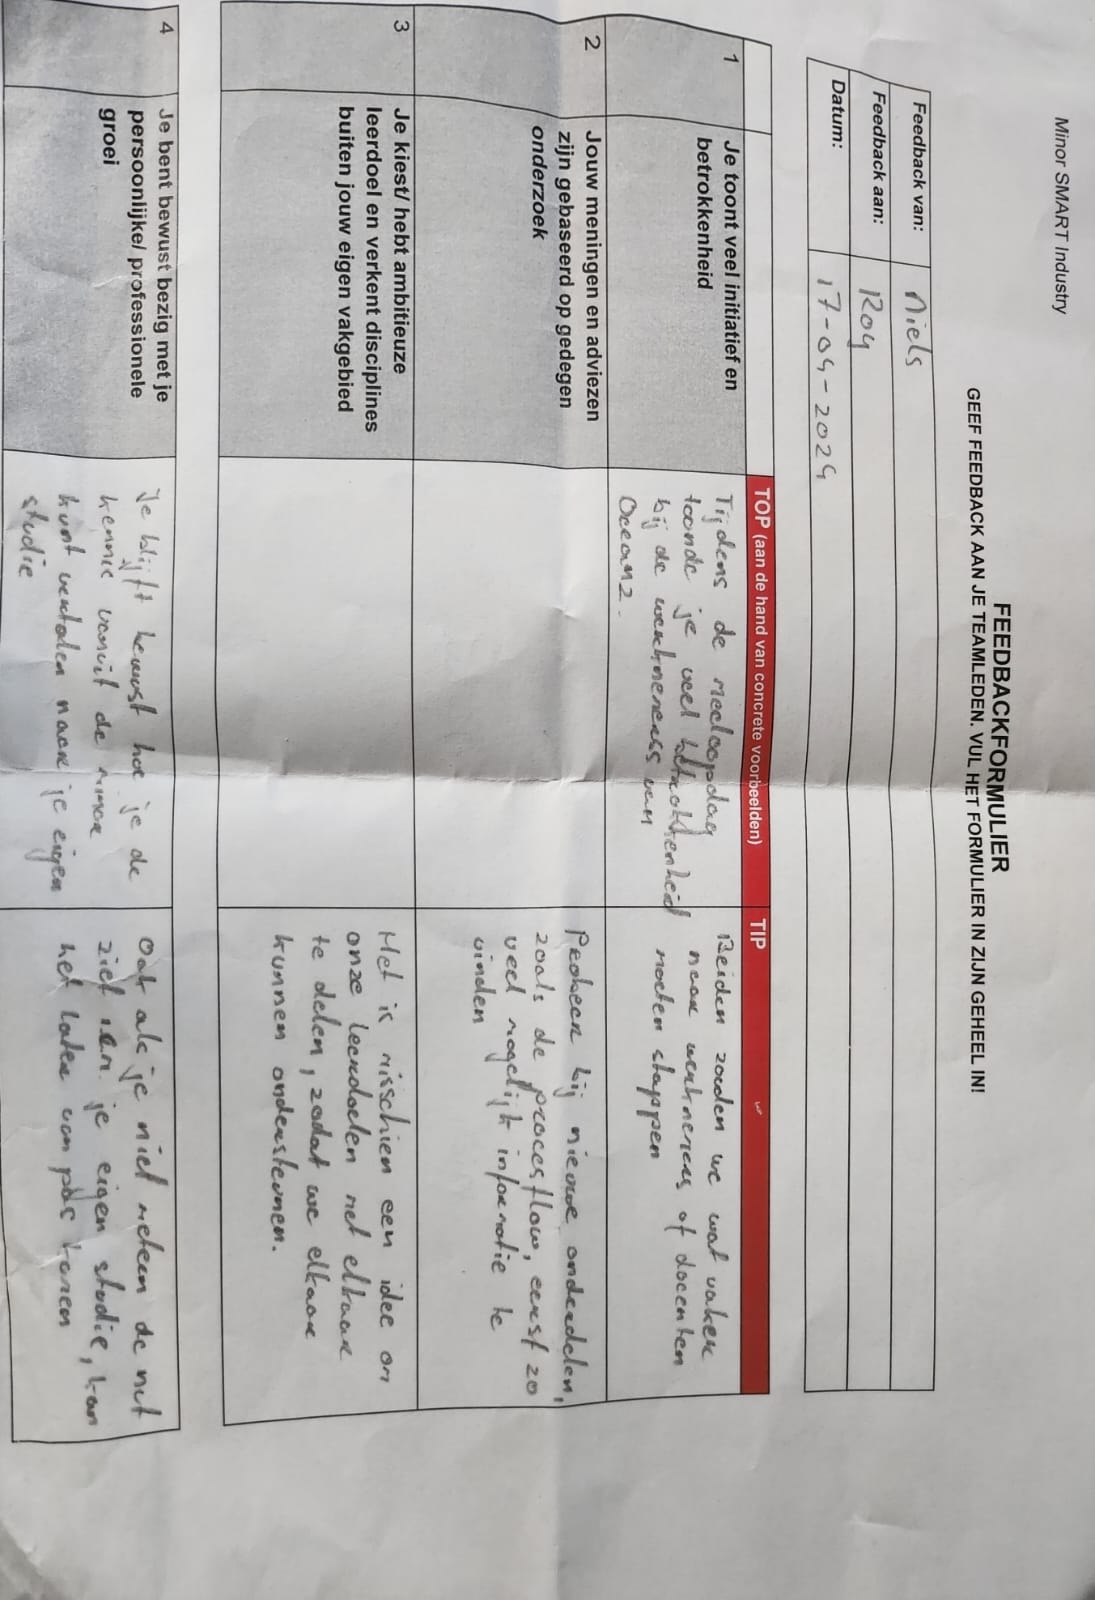 Minor SMART Industry
FEEDBACKFORMULIER
GEEF FEEDBACK AAN JE TEAMLEDEN. VUL HET FORMULIER IN ZIJN GEHEEL IN!
Feedback van: Niels
Feedback aan: Roy
Datum: 17-04-2024
TOP (aan de hand van concrete voorbeelden)
TIP
1
Je toont veel initiatief en
betrokkenheid
Tijdens de meeloopdag
toonde je veel betrokkenheid
bij de werknemers van
Oceanz.
Beiden zouden we wat vaker
naar werknemers of docenten
moeten stappen
2
Jouw meningen en adviezen
zijn gebaseerd op gedegen
onderzoek
Probeer bij nieuwe onderdelen,
zoals de procesflow, eerst zo
veel mogelijk informatie te
vinden
3
Je kiest/ hebt ambitieuze
leerdoel en verkent disciplines
buiten jouw eigen vakgebied
Het is misschien een idee om
onze leerdoelen met elkaar
te delen, zodat we elkaar
kunnen ondersteunen.
4
Je bent bewust bezig met je
persoonlijke/ professionele
groei
Je blijft bewust hoe je de
kennis vanuit de minor
kunt vertalen naar je eigen
studie
Ook als je niet meteen de nut
ziet i.c.m. je eigen studie, kan
het later van pas komen